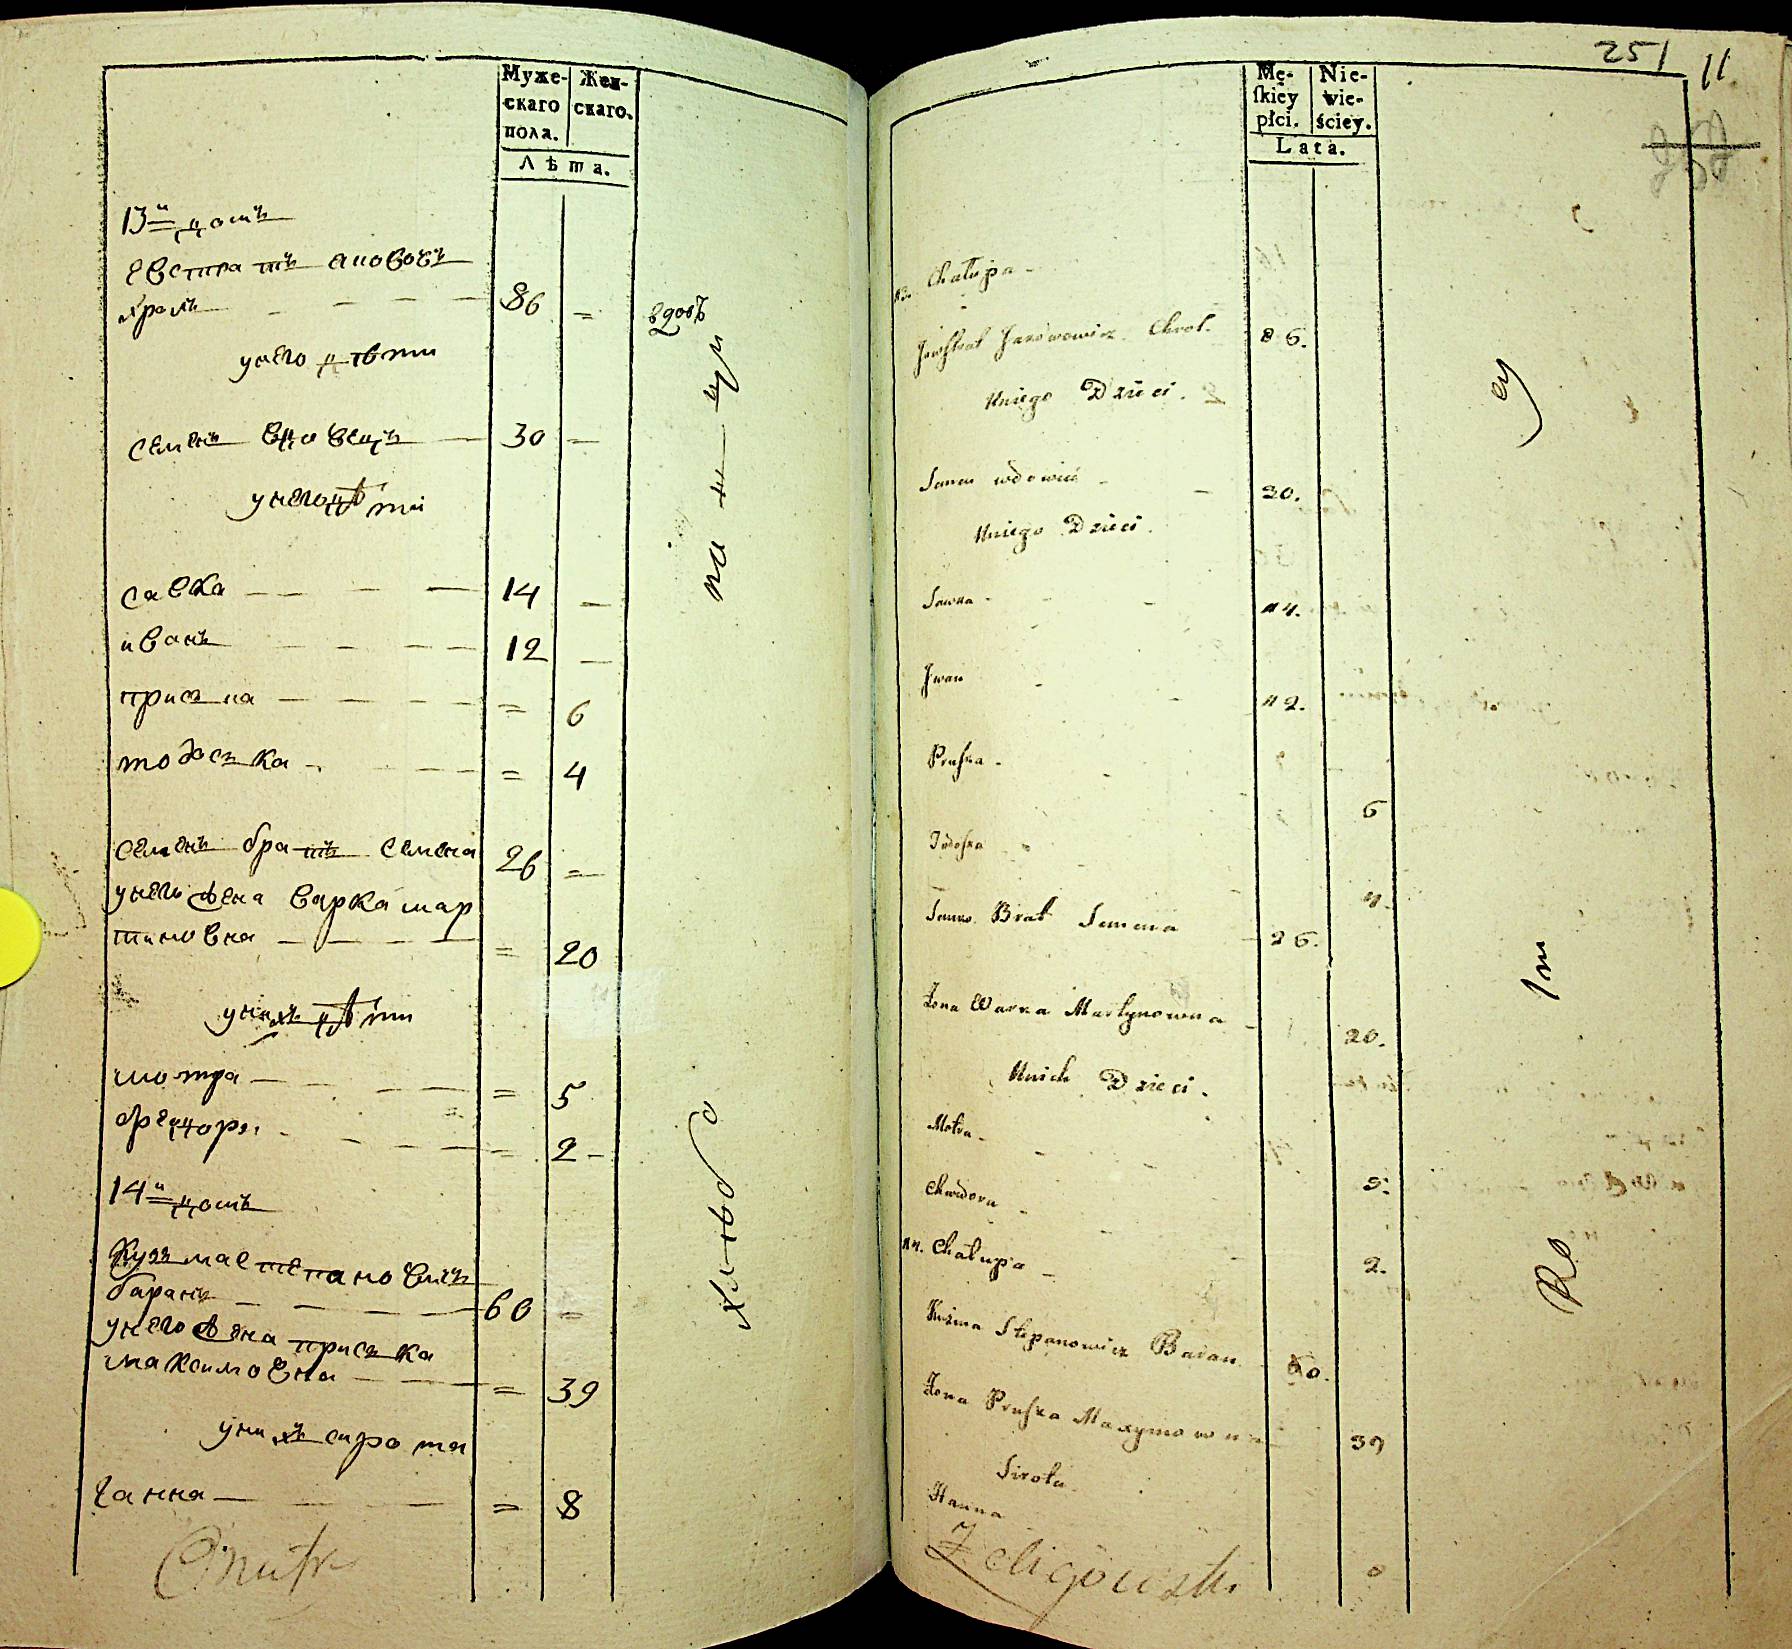 Муже-
скаго
пола.
Жен-
скаго.
Лѣта.
13й домъ
Евстратъ
храль 86 =
вдовъ
унего дѣти
семенъ вдовецъ 30 =
унего дѣти
савка 14
иванъ 12
приська = 6
тодоська = 4
семенъ братъ семена 26 =
унего жена варка мар
тиновна = 20
унихъ дѣти
мотра = 5
= 2
14й домъ
Кузьма степановичъ
баранъ 60 =
унего жена приська
максимовна = 39
унихъ сирота
ганна = 8
251
11
Mę-
ſkiey
płci.
Nie-
wie-
ściey.
Lata.
13. Chałupa
Chrol. 86.
Uniego Dzieci.
Semen wdowiec 30.
Uniego Dzieci.
Sawka 14.
Iwan 12.
Pruſka 6
Todoſka 4.
Brat Semena 26.
Żona Warka Martynowna 20.
Unich Dzieci.
Motra 5.
Chwedora 2.
14. Chałupa
Kuzma Stepanowicz Baran 60.
Żona Pruſka Maxymowna 39
Sirota
Hanna 8
Żeligowski